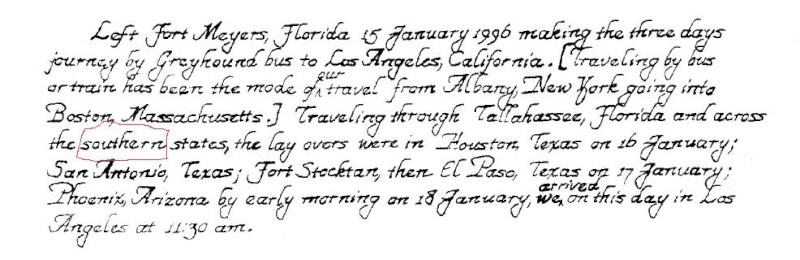 Left Fort Meyers, Florida 15 January 1996 making the three days
journey by Greyhound bus to Los Angeles, California. [Traveling by bus
or train has been the mode of our travel from Albany, New York going into
Boston, Massachusetts.] Traveling through Tallahassee, Florida and across
the southern states, the lay overs were in Houston, Texas on 16 January;
San Antonio, Texas; Fort Stocktan, then El Paso, Texas on 17 January;
Phoenix, Arizona by early morning on 18 January, we arrived on this day in Los
Angeles at 11:30 am.